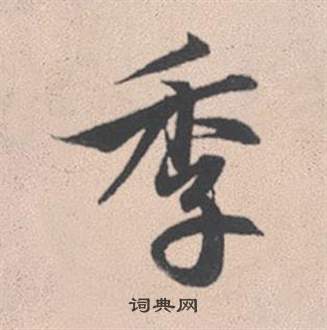 季
词典网